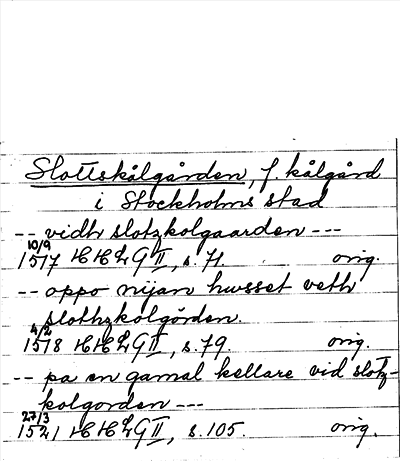 Slottskålgården, f. kålgård
i Stockholms stad
-- vidh slotzkolgaarden ---
10/9
1517 HHLG II, s. 71. orig.
-- oppo nijan hwsset veth
slothzkolgården.
4/2
1518 HHLG II, s. 79. orig.
-- pa en gamal kellare vid slotz-
kolgorden ---
27/3
1521 HHLG II, s. 105. orig.